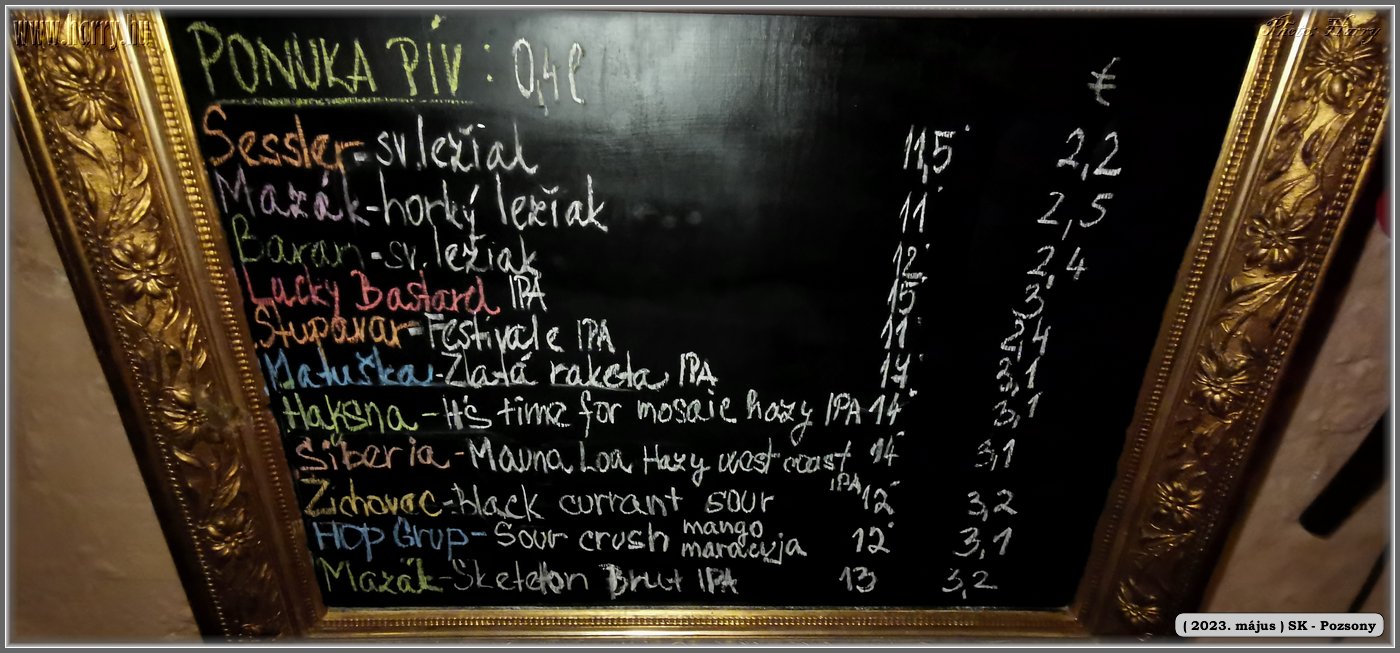 www.horry.hu
Photo: Horry
PONUKA PÍV : 0,4l €
Sessler - sv. ležiak 11,5° 2,2
Mazák - horký ležiak 11° 2,5
Baran - sv. ležiak 12° 2,4
Lucky Bastard IPA 15° 3
Stupavar - Festivale IPA 11° 2,4
Matuška - Zlatá raketa IPA 17° 3,1
Haksna - It's time for mosaic hazy IPA 14° 3,1
Siberia - Mauna Loa Hazy west coast IPA 14° 3,1
Zichovac - black currant sour 12° 3,2
HOP Grup - Sour crush mango maracuja 12° 3,1
Mazák - Skeleton Brut IPA 13 3,2
( 2023. május ) SK - Pozsony